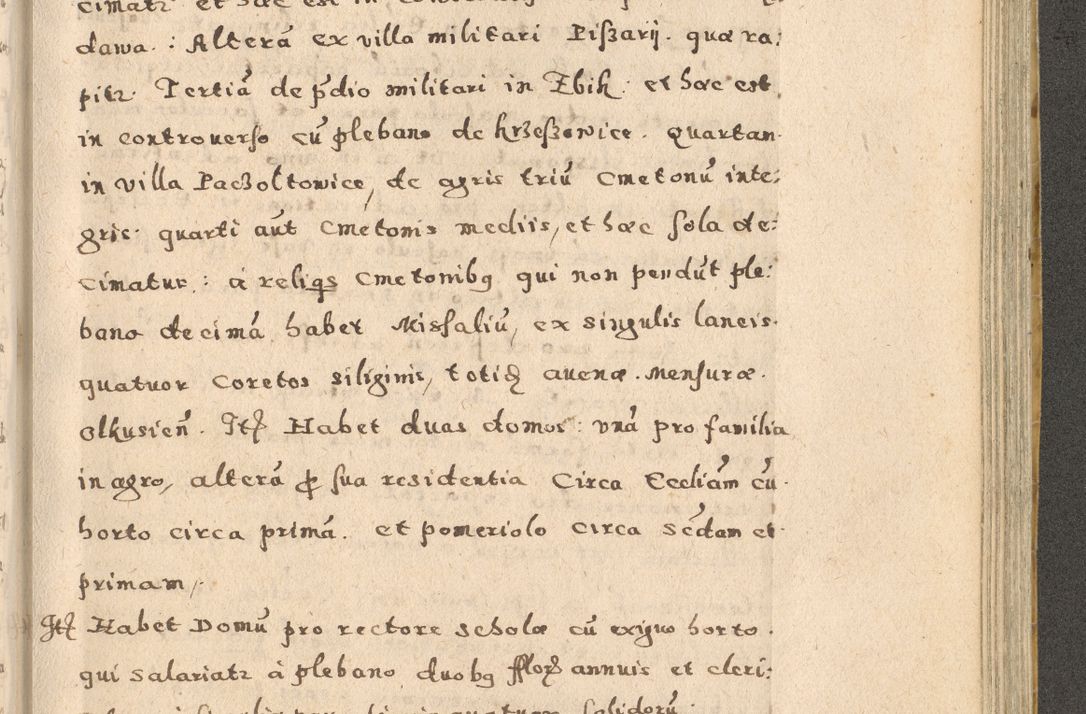 cimatz et hæc est in
dawa : Alterā ex villa militari Pißarij. quæ ra:
pitz. Tertiā de p̄dio militari in Zbik. et hæc est
in controuerso cū plebano de krzeßowice. Quartan
in villa Paczoltowice, de agris triū Cmetonū inte:
gris. quarti aūt Cmetonis mediis, et hæc sola de:
cimatur : à reliqs Cmetonibꝫ qui non pendūt ple:
bano decimā habet Missaliū, ex singulis laneis.
quatuor Coretos siliginis, totiđ auenæ. Mensuræ.
olkusien̄. Itꝫ Habet duas domos : vnā pro familia
in agro, alterā ꝓ sua residentia Circa Eccliām cū.
horto circa primā. et pomeriolo Circa Sēdam et.
primam,
Itꝫ Habet Domū pro rectore scholæ cū exiguo horto.
qui salariatz à plebano duobꝫ fflorꝫ annuis et cleri:
quatuor solidorū